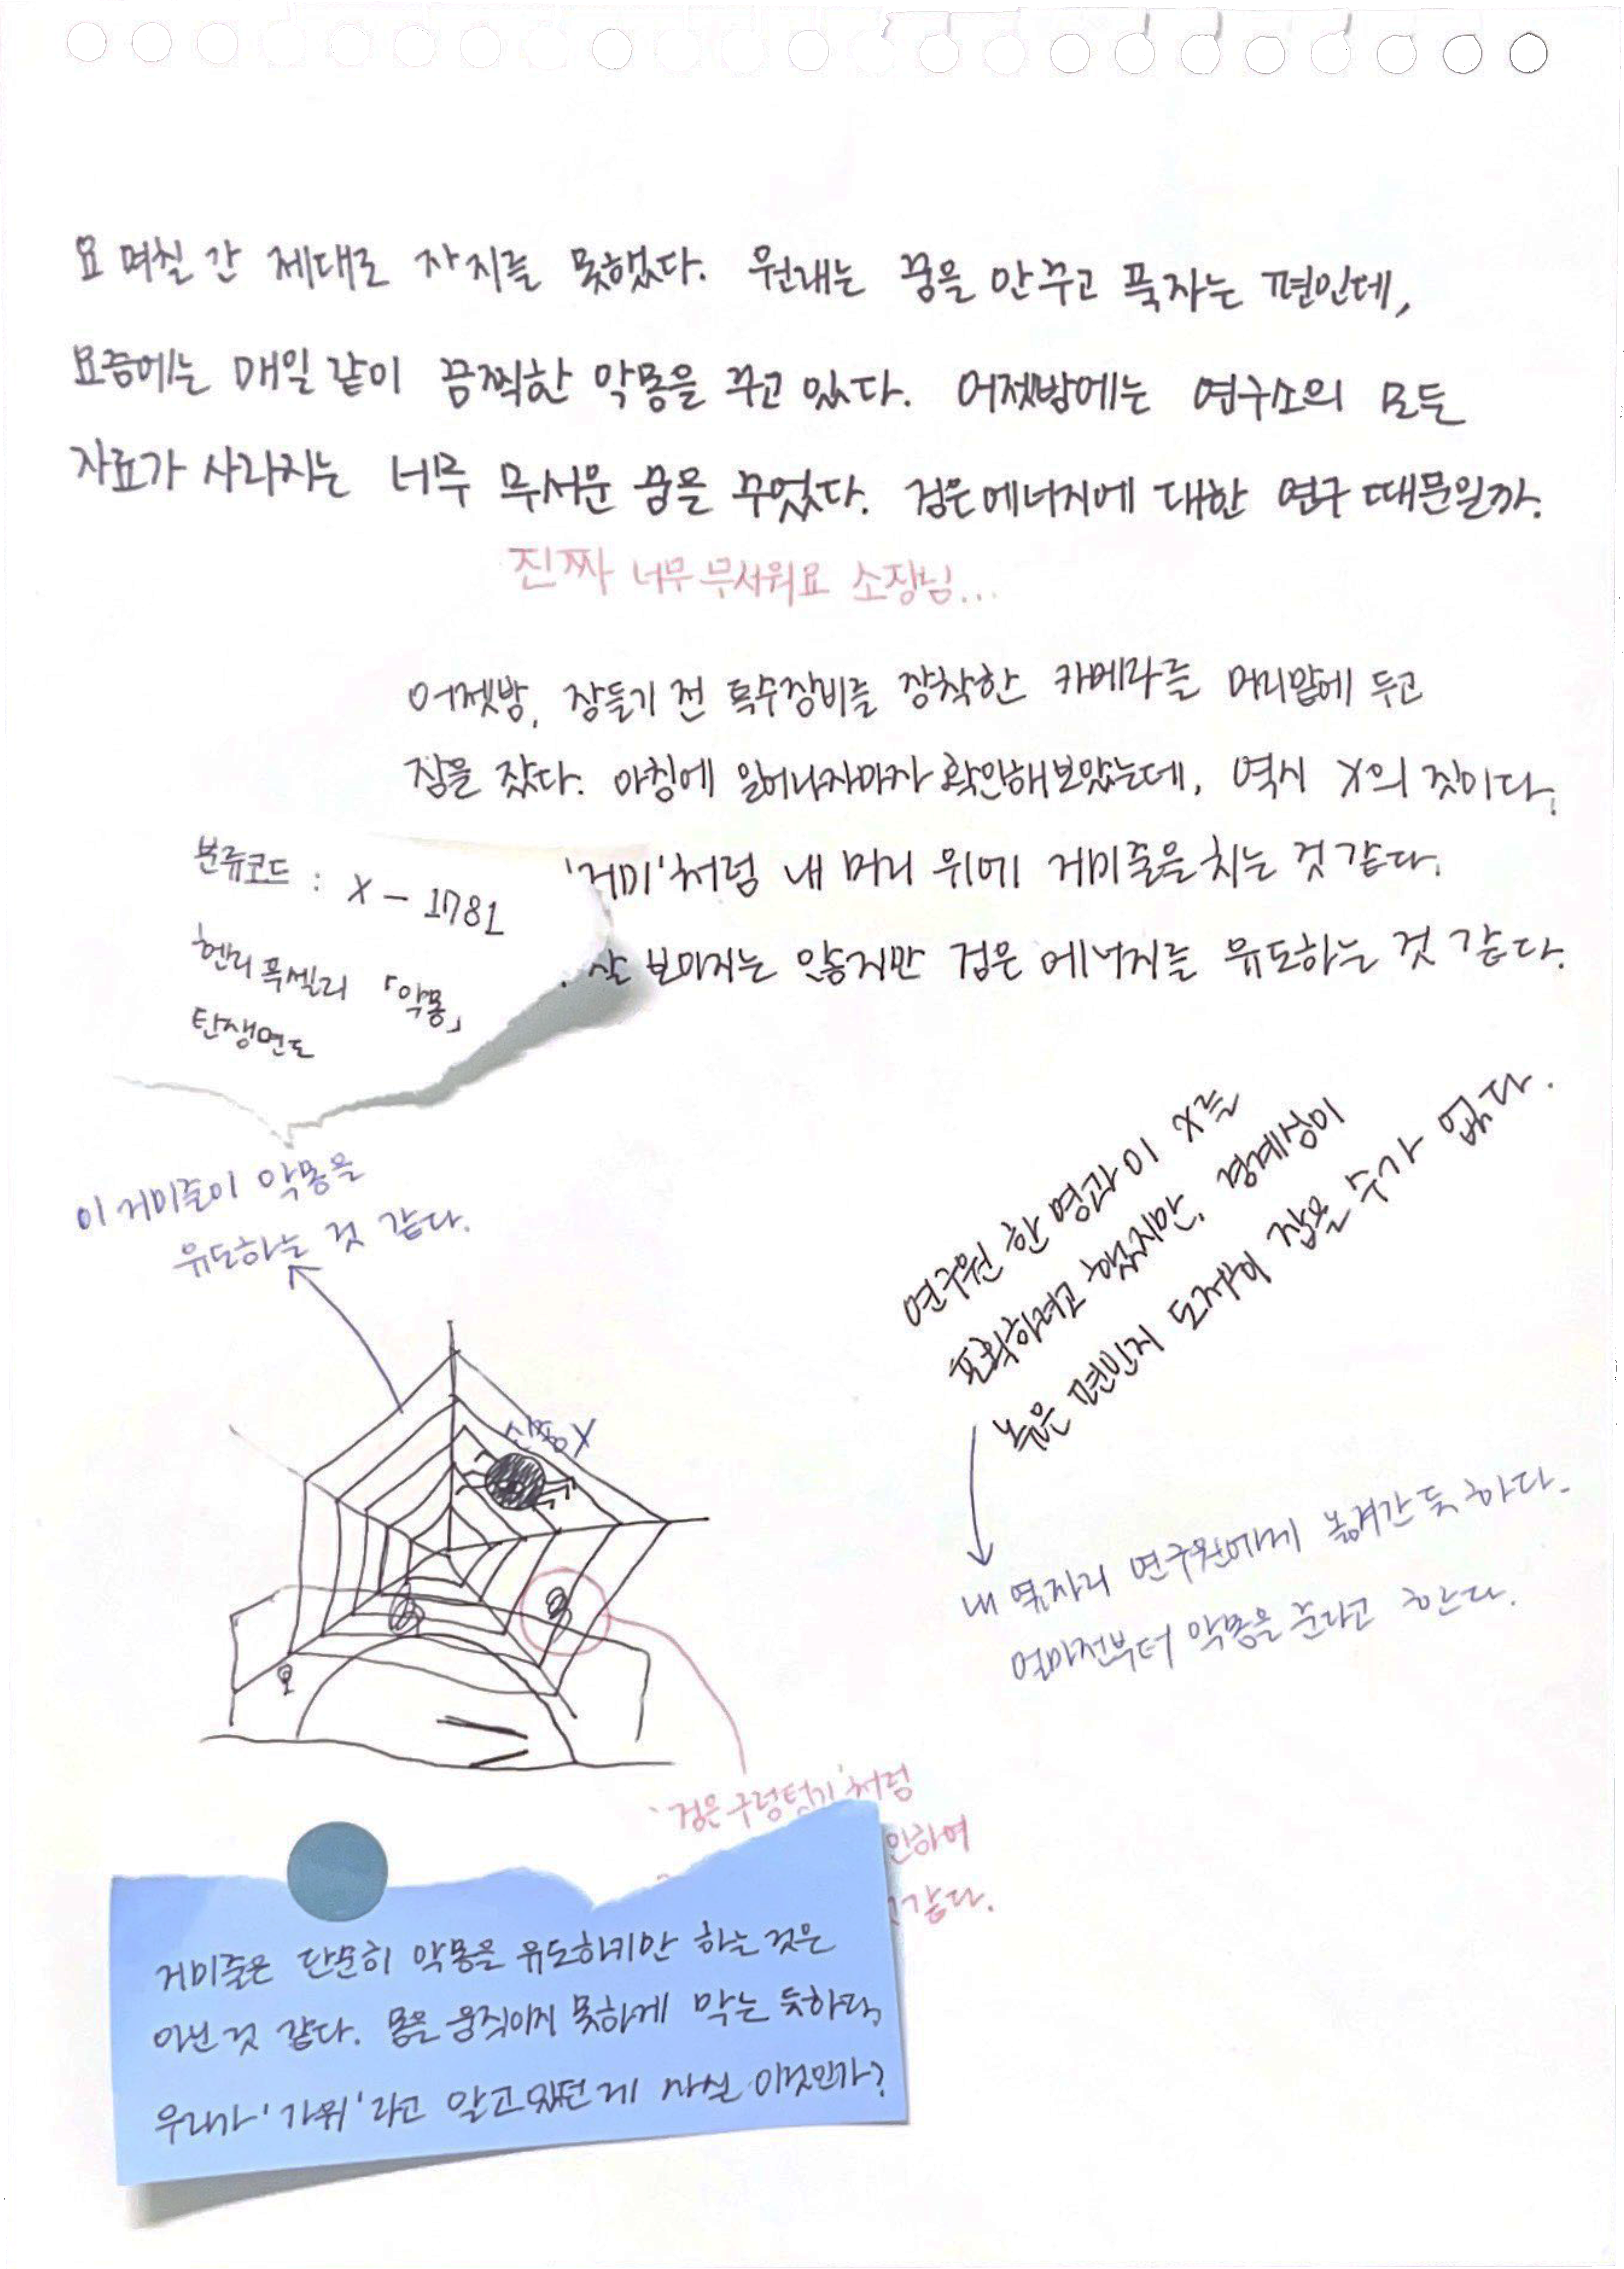 요 며칠 간 제대로 자지를 못했다. 원래는 꿈을 안꾸고 푹자는 편인데,
요즘에는 매일 같이 끔찍한 악몽을 꾸고 있다. 어젯밤에는 연구소의 모든
자료가 사라지는 너무 무서운 꿈을 꾸었다. 검은에너지에 대한 연구 때문일까.
진짜 너무 무서워요 소장님...
어젯밤, 잠들기 전 특수장비를 장착한 카메라를 머리맡에 두고
잠을 잤다. 아침에 일어나자마자 확인해보았는데, 역시 X의 짓이다.
'거미'처럼 내 머리 위에 거미줄을 치는 것 같다.
잘 보이지는 않지만 검은 에너지를 유도하는 것 같다.
분류코드 : X - 1781
헨리 푹셀리 「악몽」
탄생연도
이 거미줄이 악몽을
유도하는 것 같다.
연구원 한 명과 이 X를
포획하려고 했지만, 경계심이
높은 편인지 도저히 잡을 수가 없다.
내 옆자리 연구원에게 옮겨간 듯 하다.
얼마전부터 악몽을 꾼다고 한다.
신종X
'검은구렁텅이'처럼
인하여
같다.
거미줄은 단순히 악몽을 유도하기만 하는 것은
아닌 것 같다. 몸을 움직이지 못하게 막는 듯하다,
우리가 '가위'라고 알고있던 게 사실 이것인가?